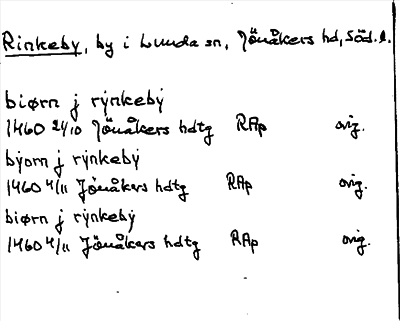 Rinkeby, by i Lunda sn, Jönåkers hd, Söd. l.
biørn j rẏnkebẏ
1460 24/10 Jönåkers hdtg RAp orig.
bẏorn j rẏnkebẏ
1460 4/11 Jönåkers hdtg RAp orig.
biørn j rẏnkebẏ
1460 4/11 Jönåkers hdtg RAp orig.